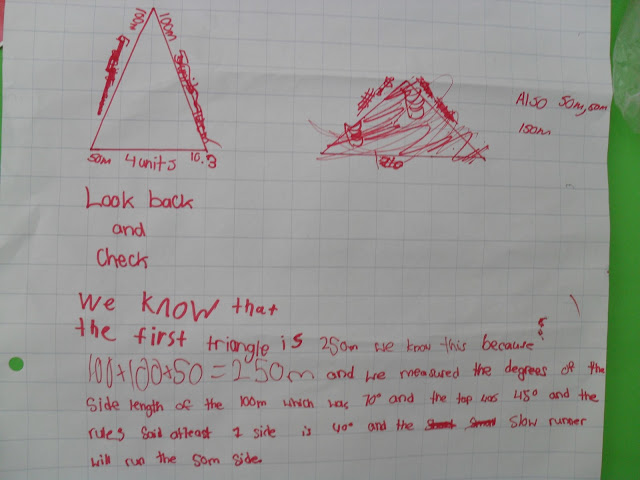 100m 100m
Also 50m, 50m
150m
50m 4 units 10.3
Look back
and
Check
We know that
the first triangle is 250m we know this because
100+100+50=250m and we measured the degrees of the
side length of the 100m which was 70° and the top was 45° and the
rules said atleast 1 side is 40° and the slow runner
will run the 50m side.